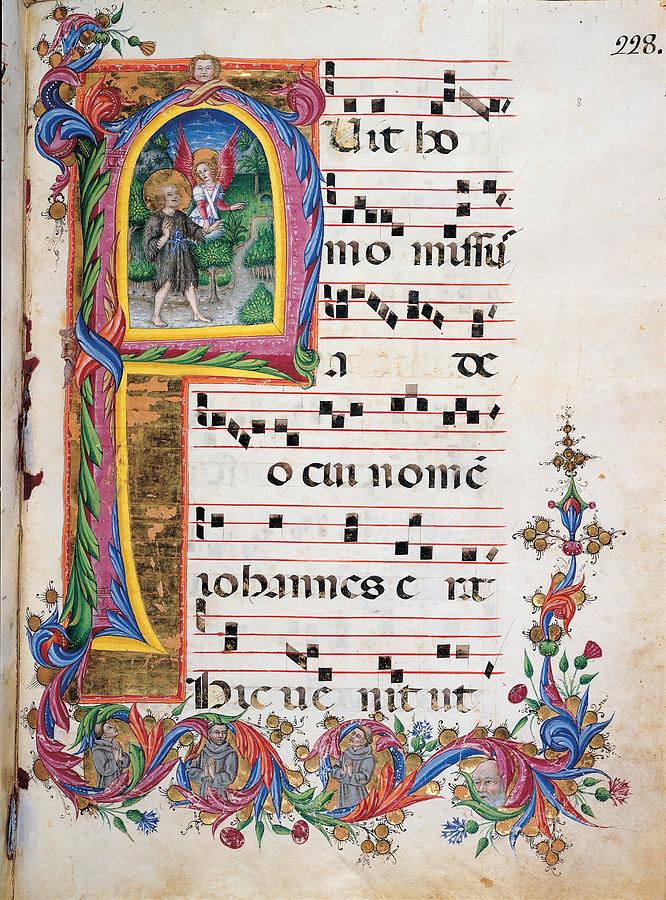 228.
8
FUit ho
mo missū
a de
o cui nomē
iohannes e rat
Hic ue nit ut